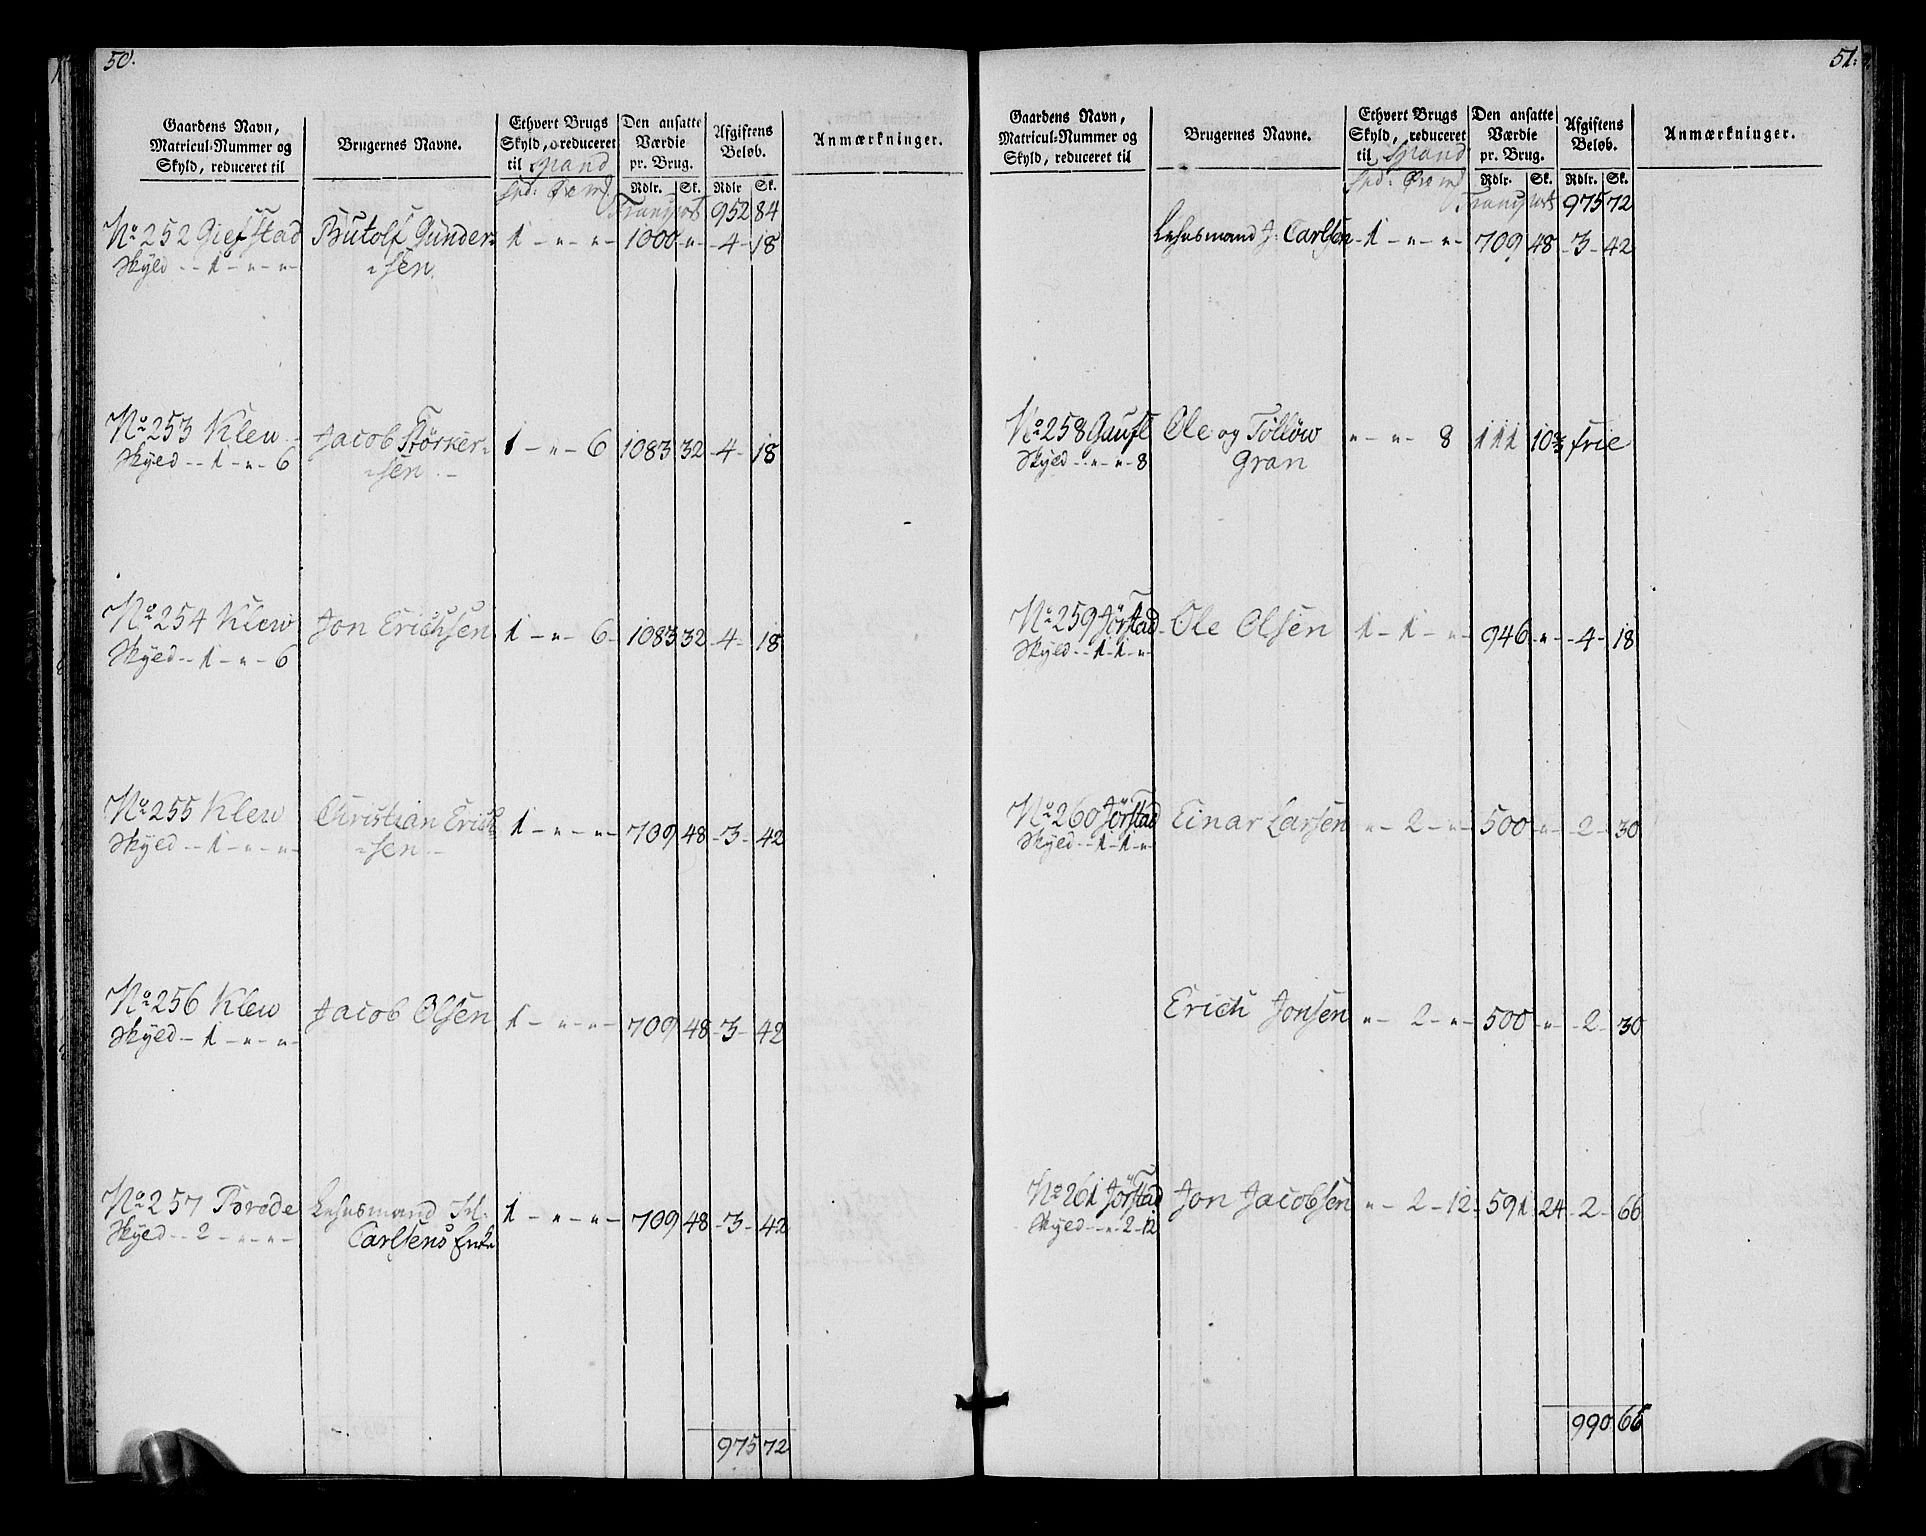 50.
Gaardens Navn, Matricul-Nummer og Skyld, reduceret til
Brugernes Navne.
Ethvert Brugs Skyld, reduceret til Spand
Den ansatte Værdie pr. Brug.
Afgiftens Beløb.
Anmærkninger.
Rdlr. Sk. Rdlr Sk.
Transport 952 84
No 252 Giefstad Brutolf Gunder- 1 - " - " - 1000 " - 4 - 18
Skyld - - 1 - " - " - sen
No 253 Klew Jacob Störker- 1 - " - 6 1083 32 - 4 - 18
Skyld - - 1 - " - 6 sen
No 254 Klew Jon Erichsen 1 - " - 6 - 1083 32 - 4 - 18
Skyld - - 1 - " - 6
No 255 Klew Christian Erich 1 - " - " - 709 48 - 3 - 42
Skyld - - 1 - " - " - sen
No 256 Klew Jacob Olsen 1 - " - " - 709 48 - 3 - 42
Skyld - 1 - " - " -
No 257 Brode Lehnsmand 1 - " - " - 709 48 - 3 - 42
Skyld - - 2 - " - " - Carlsens Enke
975 72
51.
Gaardens Navn, Matricul-Nummer og Skyld, reduceret til
Brugernes Navne.
Ethvert Brugs Skyld, reduceret til Spand
Den ansatte Værdie pr. Brug.
Afgiftens Beløb.
Anmærkninger.
Rdlr. Sk. Rdlr. Sk.
Transport 975 72
Lehnsmand J: Carlsen 1 - " - " - 709 48 - 3 - 42
No 258 Ole og Tollöw " - " - 8 111 10⅔ frie
Skyld - " - " - 8 Gran
No 259 Jörstad Ole Olsen 1 - 1 - " - 946 " - 4 - 18
Skyld - - 1 - 1 - "
No 260 Jörstad Einar Larsen " - 2 - " - 500 " - 2 - 30
Skyld - - 1 - 1 - "
Erich Jonsen " - 2 - " - 500 " - 2 - 30
No 261 Jörstad Jon Jacobsen " - 2 - 12 - 591 24 - 2 - 66
Skyld - - " - 2 - 12
990 66